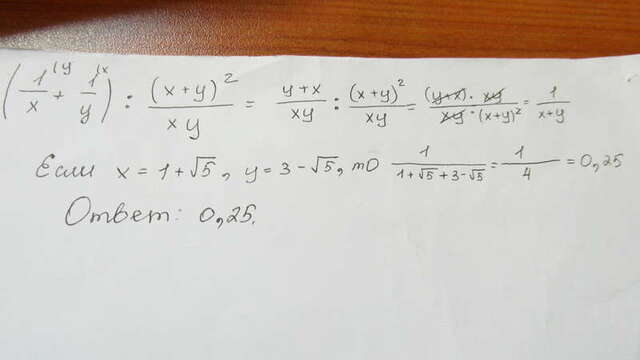 (1/x + 1/y) : (x+y)²/xy = y+x/xy : (x+y)²/xy = (y+x)·xy/xy·(x+y)² = 1/x+y
Если x = 1+√5, y = 3-√5, то 1/1+√5+3-√5 = 1/4 = 0,25
Ответ: 0,25.